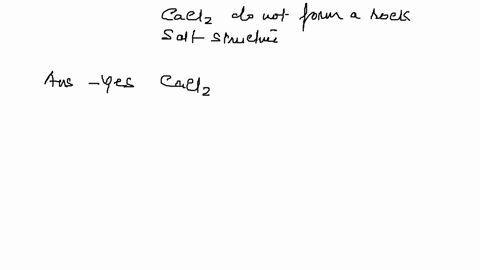 CaCl2 do not form a rock
Salt structure
Ans - Yes CaCl2